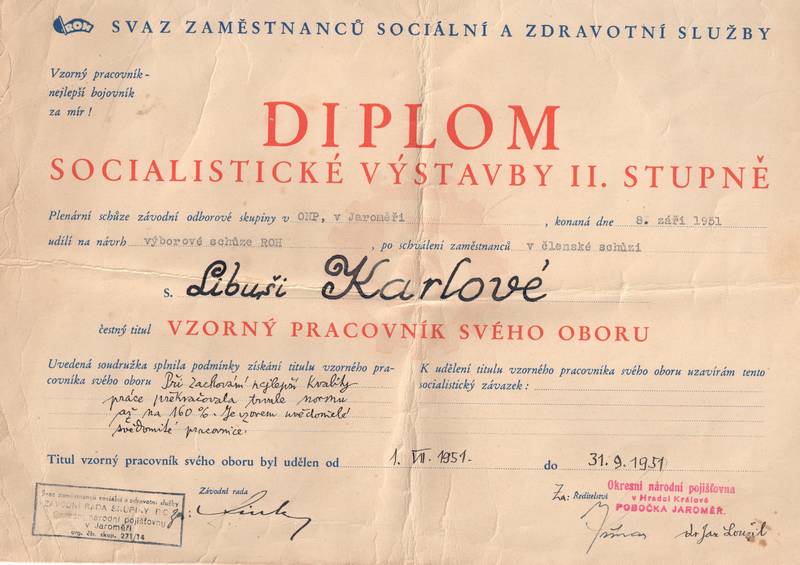 ROH SVAZ ZAMĚSTNANCŮ SOCIÁLNÍ A ZDRAVOTNÍ SLUŽBY
Vzorný pracovník -
nejlepší bojovník
za mír!
DIPLOM
SOCIALISTICKÉ VÝSTAVBY II. STUPNĚ
Plenární schůze závodní odborové skupiny v ONP, v Jaroměři, konaná dne 8. září 1951
udílí na návrh výborové schůze ROH, po schválení zaměstnanců v členské schůzi
s. Libuši Karlové
čestný titul VZORNÝ PRACOVNÍK SVÉHO OBORU
Uvedená soudružka splnila podmínky získání titulu vzorného pra-
covníka svého oboru Při zachování nejlepší kvality
práce překračovala trvale normu
až na 160%. Je vzorem uvědomělé
svědomité pracovnice.
K udělení titulu vzorného pracovníka svého oboru uzavírám tento
socialistický závazek:
Titul vzorný pracovník svého oboru byl udělen od 1. VII. 1951 do 31.9.1951
Svaz zaměstnanců sociální a zdravotní služby
ZÁVODNÍ RADA SKUPINY
Okresní národní pojišťovnu
v Jaroměři
org. čb. skup. 271/14
Závodní rada
Za: Ředitelství
Okresní národní pojišťovna
v Hradci Králové
POBOČKA JAROMĚŘ.
dr Jan